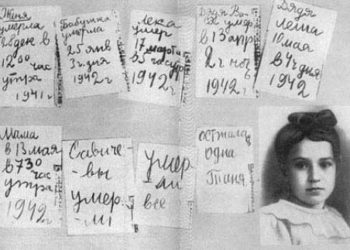 Женя
умерла
28 дек в
12 00 час
утра
1941 г
Бабушка
умерла
25 янв
3 ч дня
1942 г
Лека
умер
17 марта
в 5 час
1942 г
Дядя Ва
умер
в 13 апр
2 ч ноч
1942 г
Дядя
Леша
10 мая
в 4 ч дня
1942 г
Мама
в 13 мая
в 7 30 час
утра
1942 г
Савиче-
вы
умер-
ли
умер
ли
все
осталась
одна
Таня